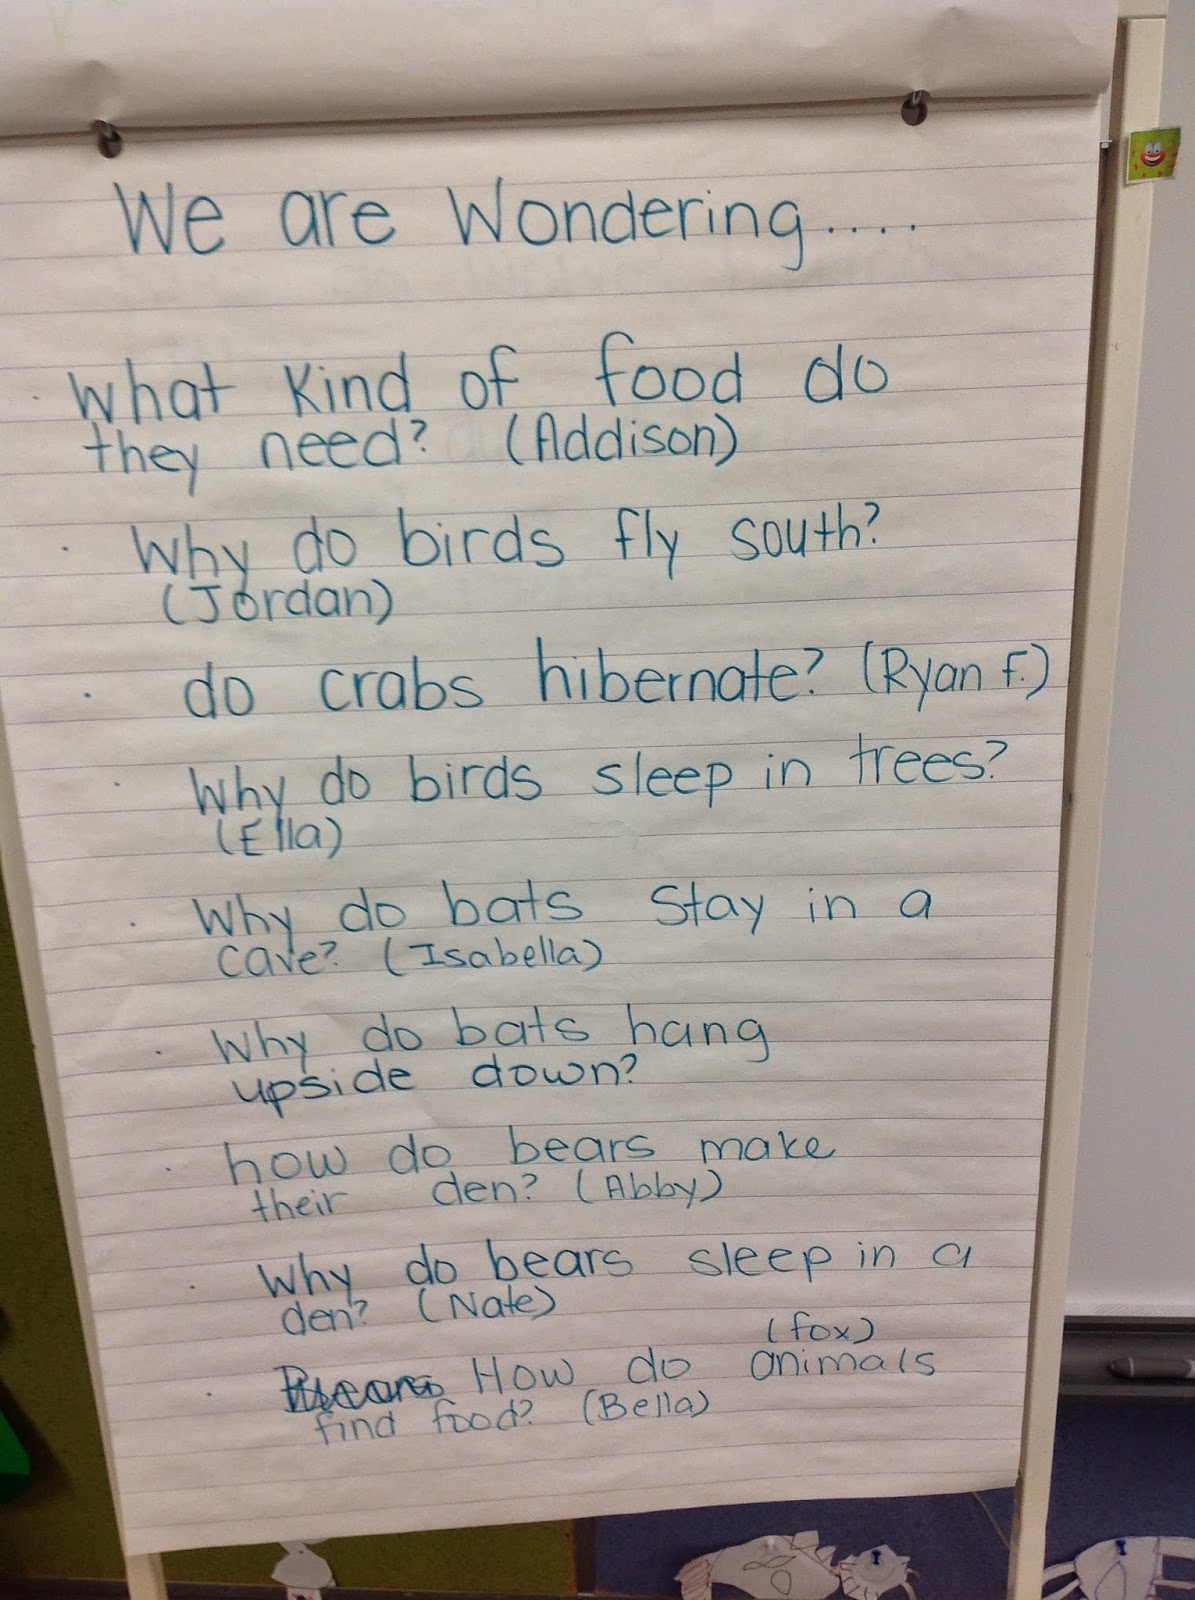 We are Wondering....
· What kind of food do
they need? (Addison)
· Why do birds fly south?
(Jordan)
· do crabs hibernate? (Ryan F.)
· Why do birds sleep in trees?
(Ella)
· Why do bats stay in a
cave? (Isabella)
· Why do bats hang
upside down?
· how do bears make
their den? (Abby)
· Why do bears sleep in a
den? (Nate)
(fox)
· How do animals
find food? (Bella)